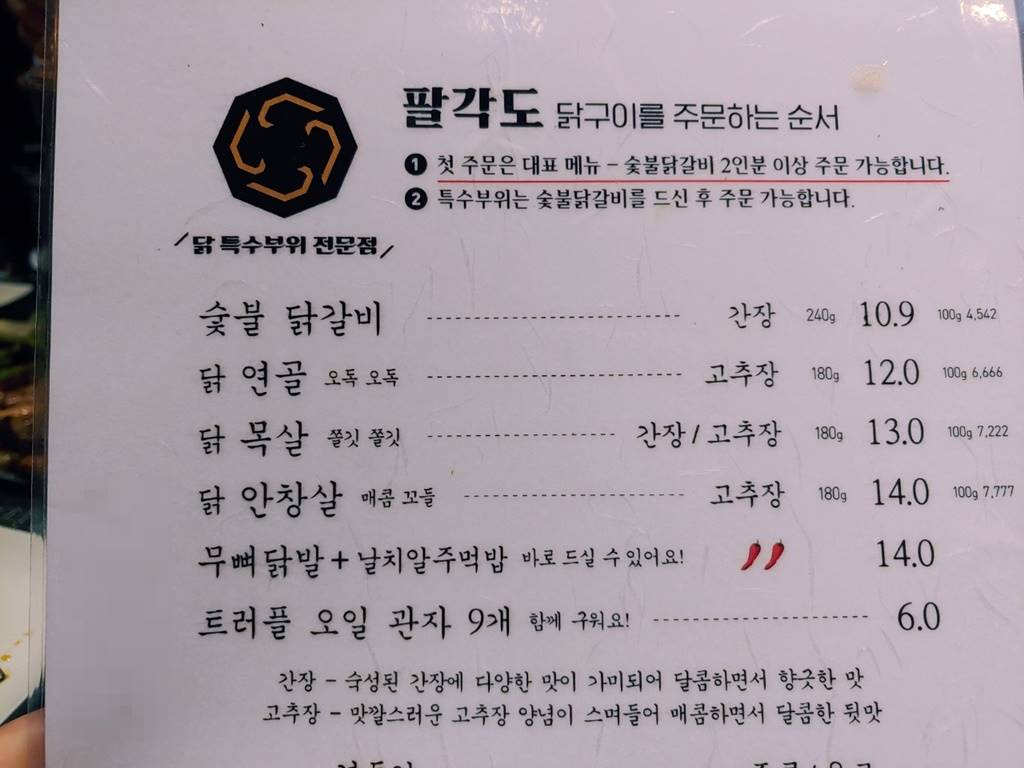 팔각도 닭구이를 주문하는 순서
❶ 첫 주문은 대표 메뉴 – 숯불닭갈비 2인분 이상 주문 가능합니다.
❷ 특수부위는 숯불닭갈비를 드신 후 주문 가능합니다.
닭 특수부위 전문점
숯불 닭갈비 간장 240g 10.9 100g 4,542
닭 연골 오독 오독 고추장 180g 12.0 100g 6,666
닭 목살 쫄깃 쫄깃 간장 / 고추장 180g 13.0 100g 7,222
닭 안창살 매콤 꼬들 고추장 180g 14.0 100g 7,777
무뼈닭발 + 날치알주먹밥 바로 드실 수 있어요! 14.0
트러플 오일 관자 9개 함께 구워요! 6.0
간장 – 숙성된 간장에 다양한 맛이 가미되어 달콤하면서 향긋한 맛
고추장 – 맛깔스러운 고추장 양념이 스며들어 매콤하면서 달콤한 뒷맛